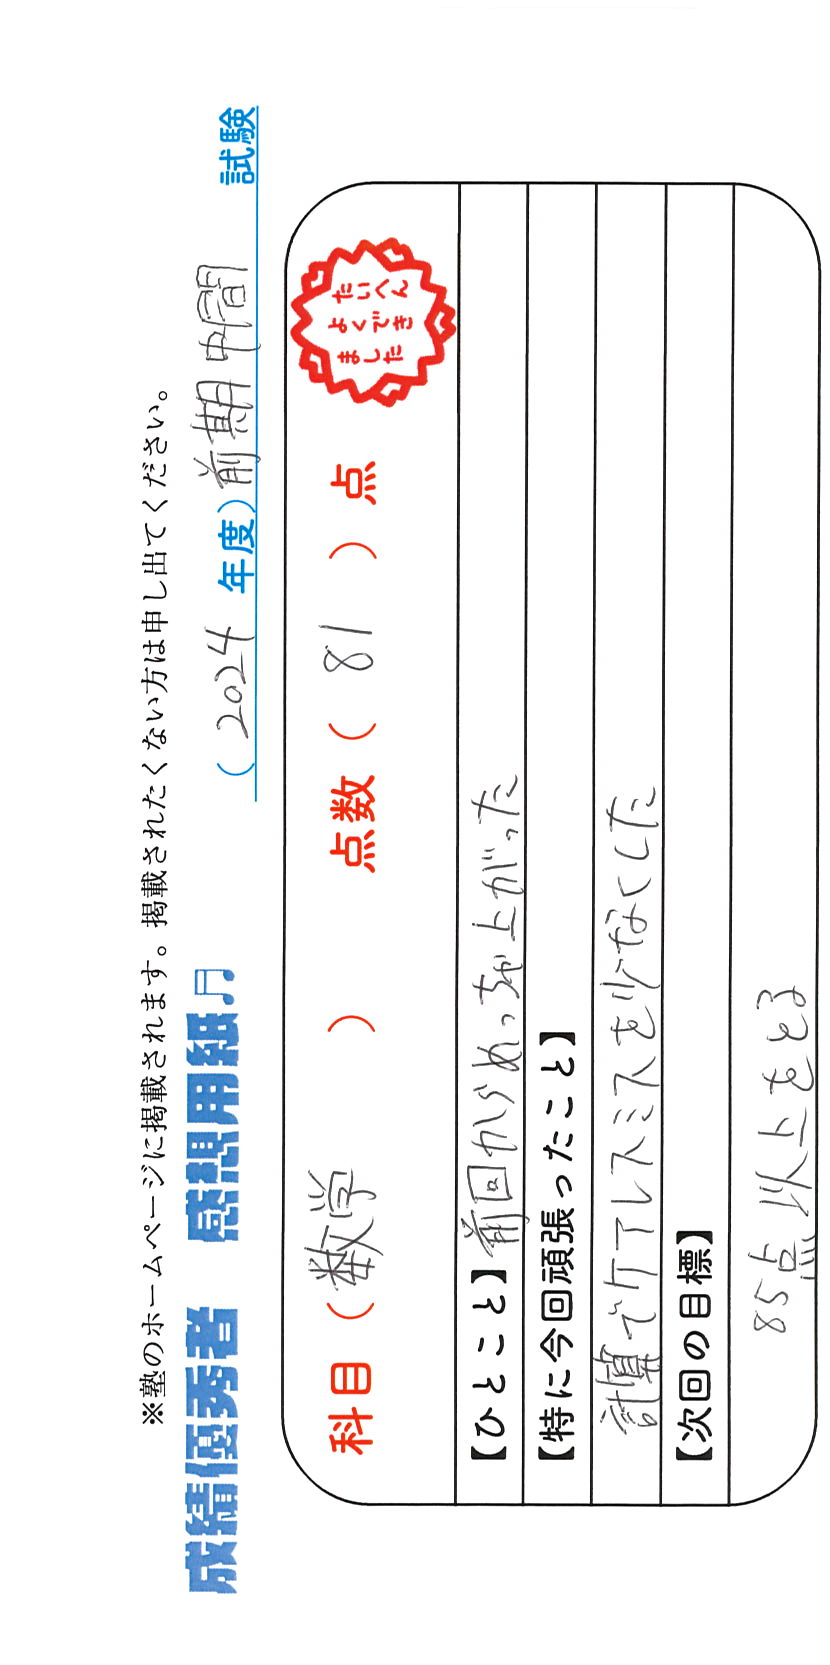 ※塾のホームページに掲載されます。掲載されたくない方は申し出てください。
成績優秀者 感想用紙♬ (2024年度)前期中間 試験
科目(数学) 点数(81)点
たいへん
よくでき
ました
【ひとこと】前回からめっちゃ上がった
【特に今回頑張ったこと】
計算でケアレスミスを少なくした
【次回の目標】
85点以上をとる